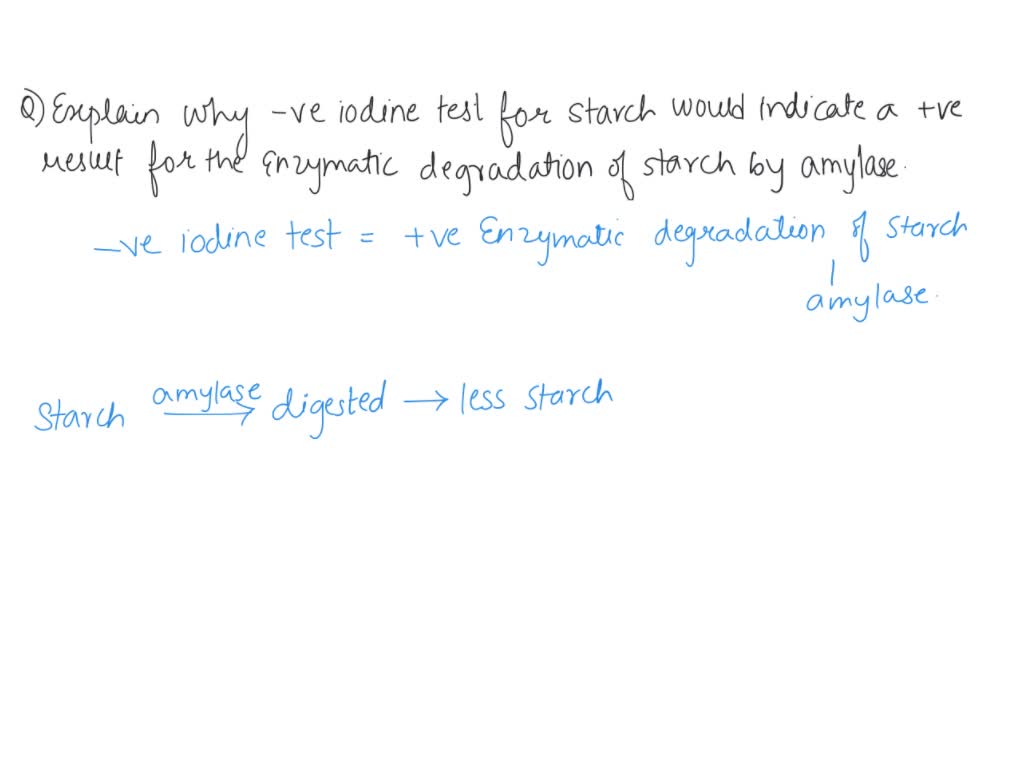 Q) Explain why -ve iodine test for starch would indicate a +ve
result for the enzymatic degradation of starch by amylase.
-ve iodine test = +ve Enzymatic degradation of starch
amylase.
Starch amylase → digested → less starch